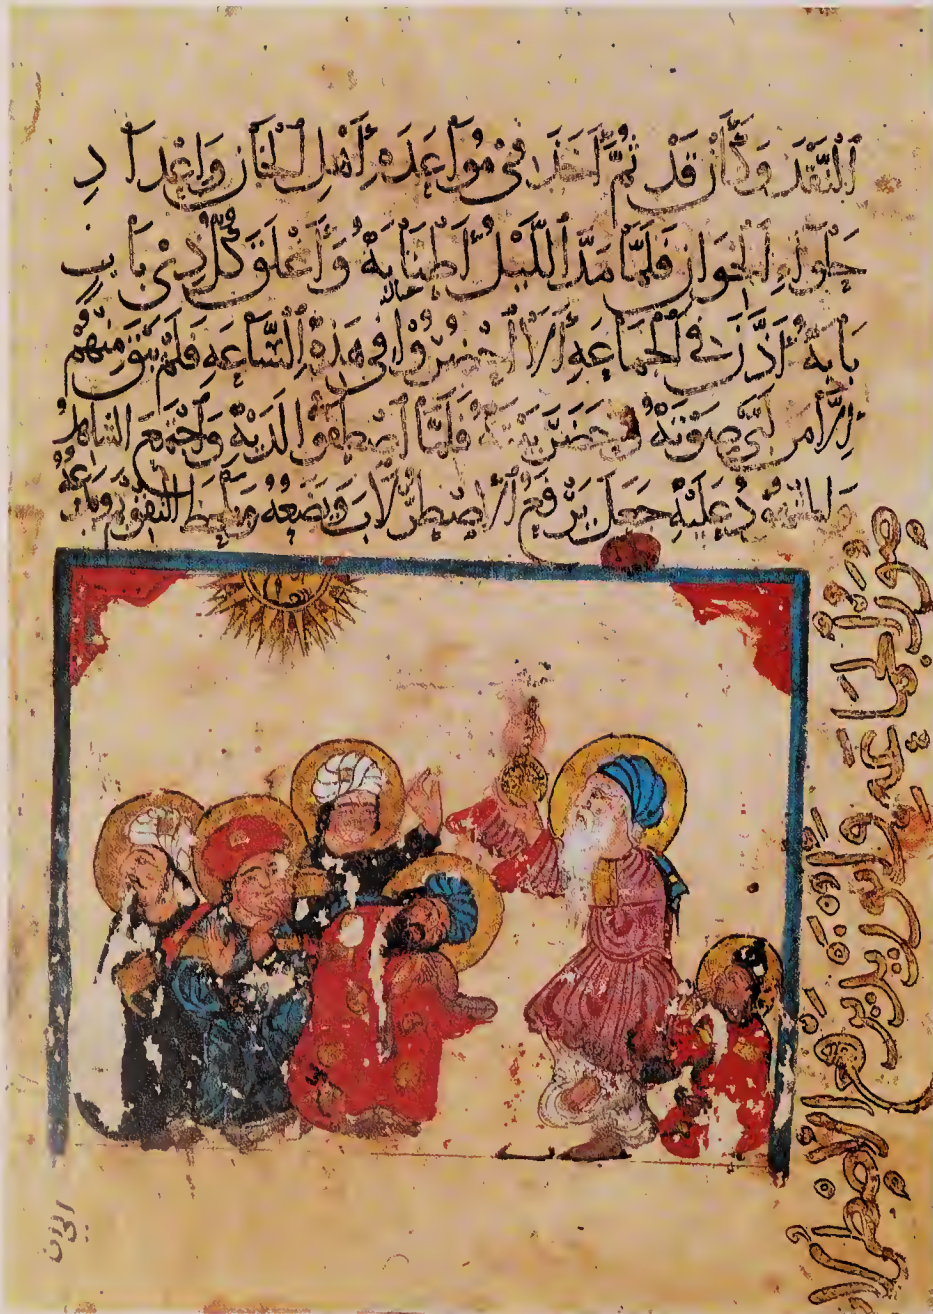 اَلنَّقْدَ وَكَأَنْ قَدْ ثُمَّ أَخَذَ فِي مُوَاعَدَةِ أَهْلِ الْخَانِ وَإِعْدَادِ
حَلْوَاءِ الْخِوَانِ فَلَمَّا مَدَّ اللَّيْلُ أَطْنَابَهُ وَأَغْلَقَ كُلُّ ذِي بَابٍ
بَابَهُ أَذَّنَ فِي الْجَمَاعَةِ أَلَا احْضُرُوا فِي هَذِهِ السَّاعَةِ فَلَمْ يَبْقَ مِنْهُمْ
إِلَّا مَن لَبَّى صَوْتَهُ وَحَضَرَ بَيْتَهُ فَلَمَّا اصْطَفُّوا لَدَيْهِ وَاجْتَمَعَ الشَّاهِدُ
وَالْمَشْهُودُ عَلَيْهِ جَعَلَ يَرْفَعُ الْاِصْطِرْلَابَ وَيَضَعُهُ وَيَلْحَظُ التَّقْوِيمَ وَيَدَعُهُ
صُورَةُ الْجَمَاعَةِ وَأَبُو زَيْدٍ يَرْفَعُ الْاِصْطِرْلَابَ